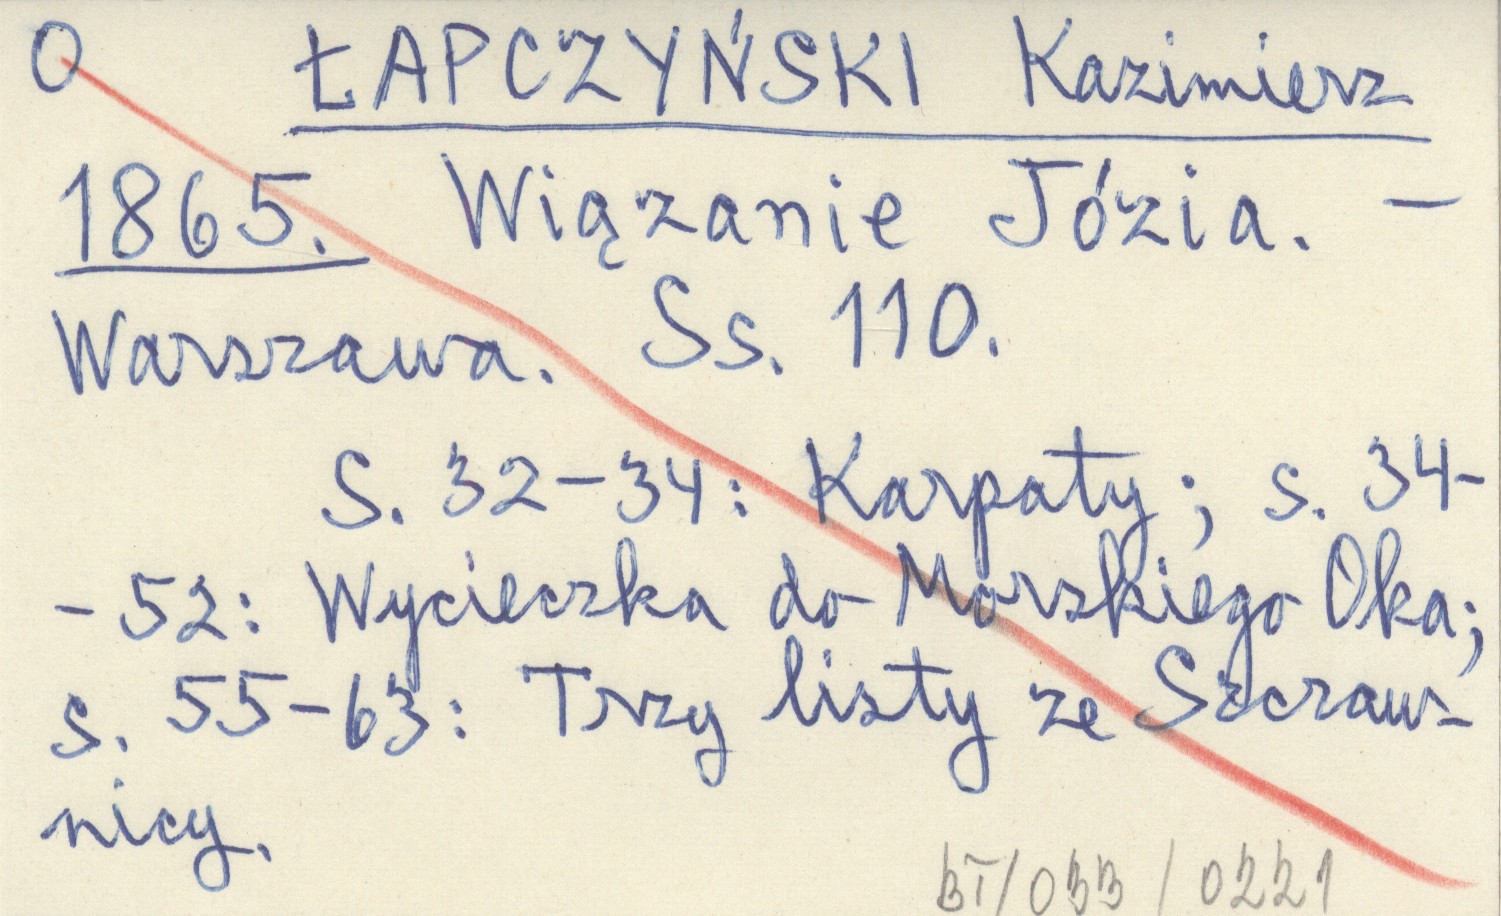 O ŁAPCZYŃSKI Kazimierz
1865. Wiązanie Józia. –
Warszawa. Ss. 110.
S. 32–34: Karpaty; s. 34–
– 52: Wycieczka do Morskiego Oka;
s. 55–63: Trzy listy ze Szczaw-
nicy.
BT/033/0221